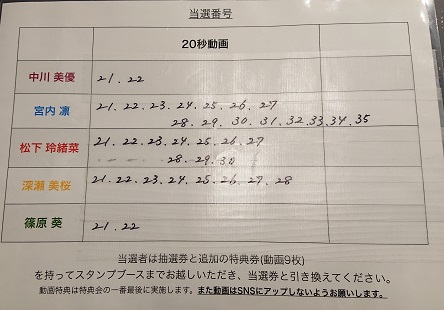 当選番号
20秒動画
中川 美優
21.22
宮内 凛
21.22.23.24.25.26.27
28.29.30.31.32.33.34.35
松下 玲緒菜
21.22.23.24.25.26.27
28.29.30
深瀬 美桜
21.22.23.24.25.26.27.28
篠原 葵
21.22
当選者は抽選券と追加の特典券(動画9枚)
を持ってスタンプブースまでお越しいただき、当選券と引き換えてください。
動画特典は特典会の一番最後に実施します。また動画はSNSにアップしないようお願いします。